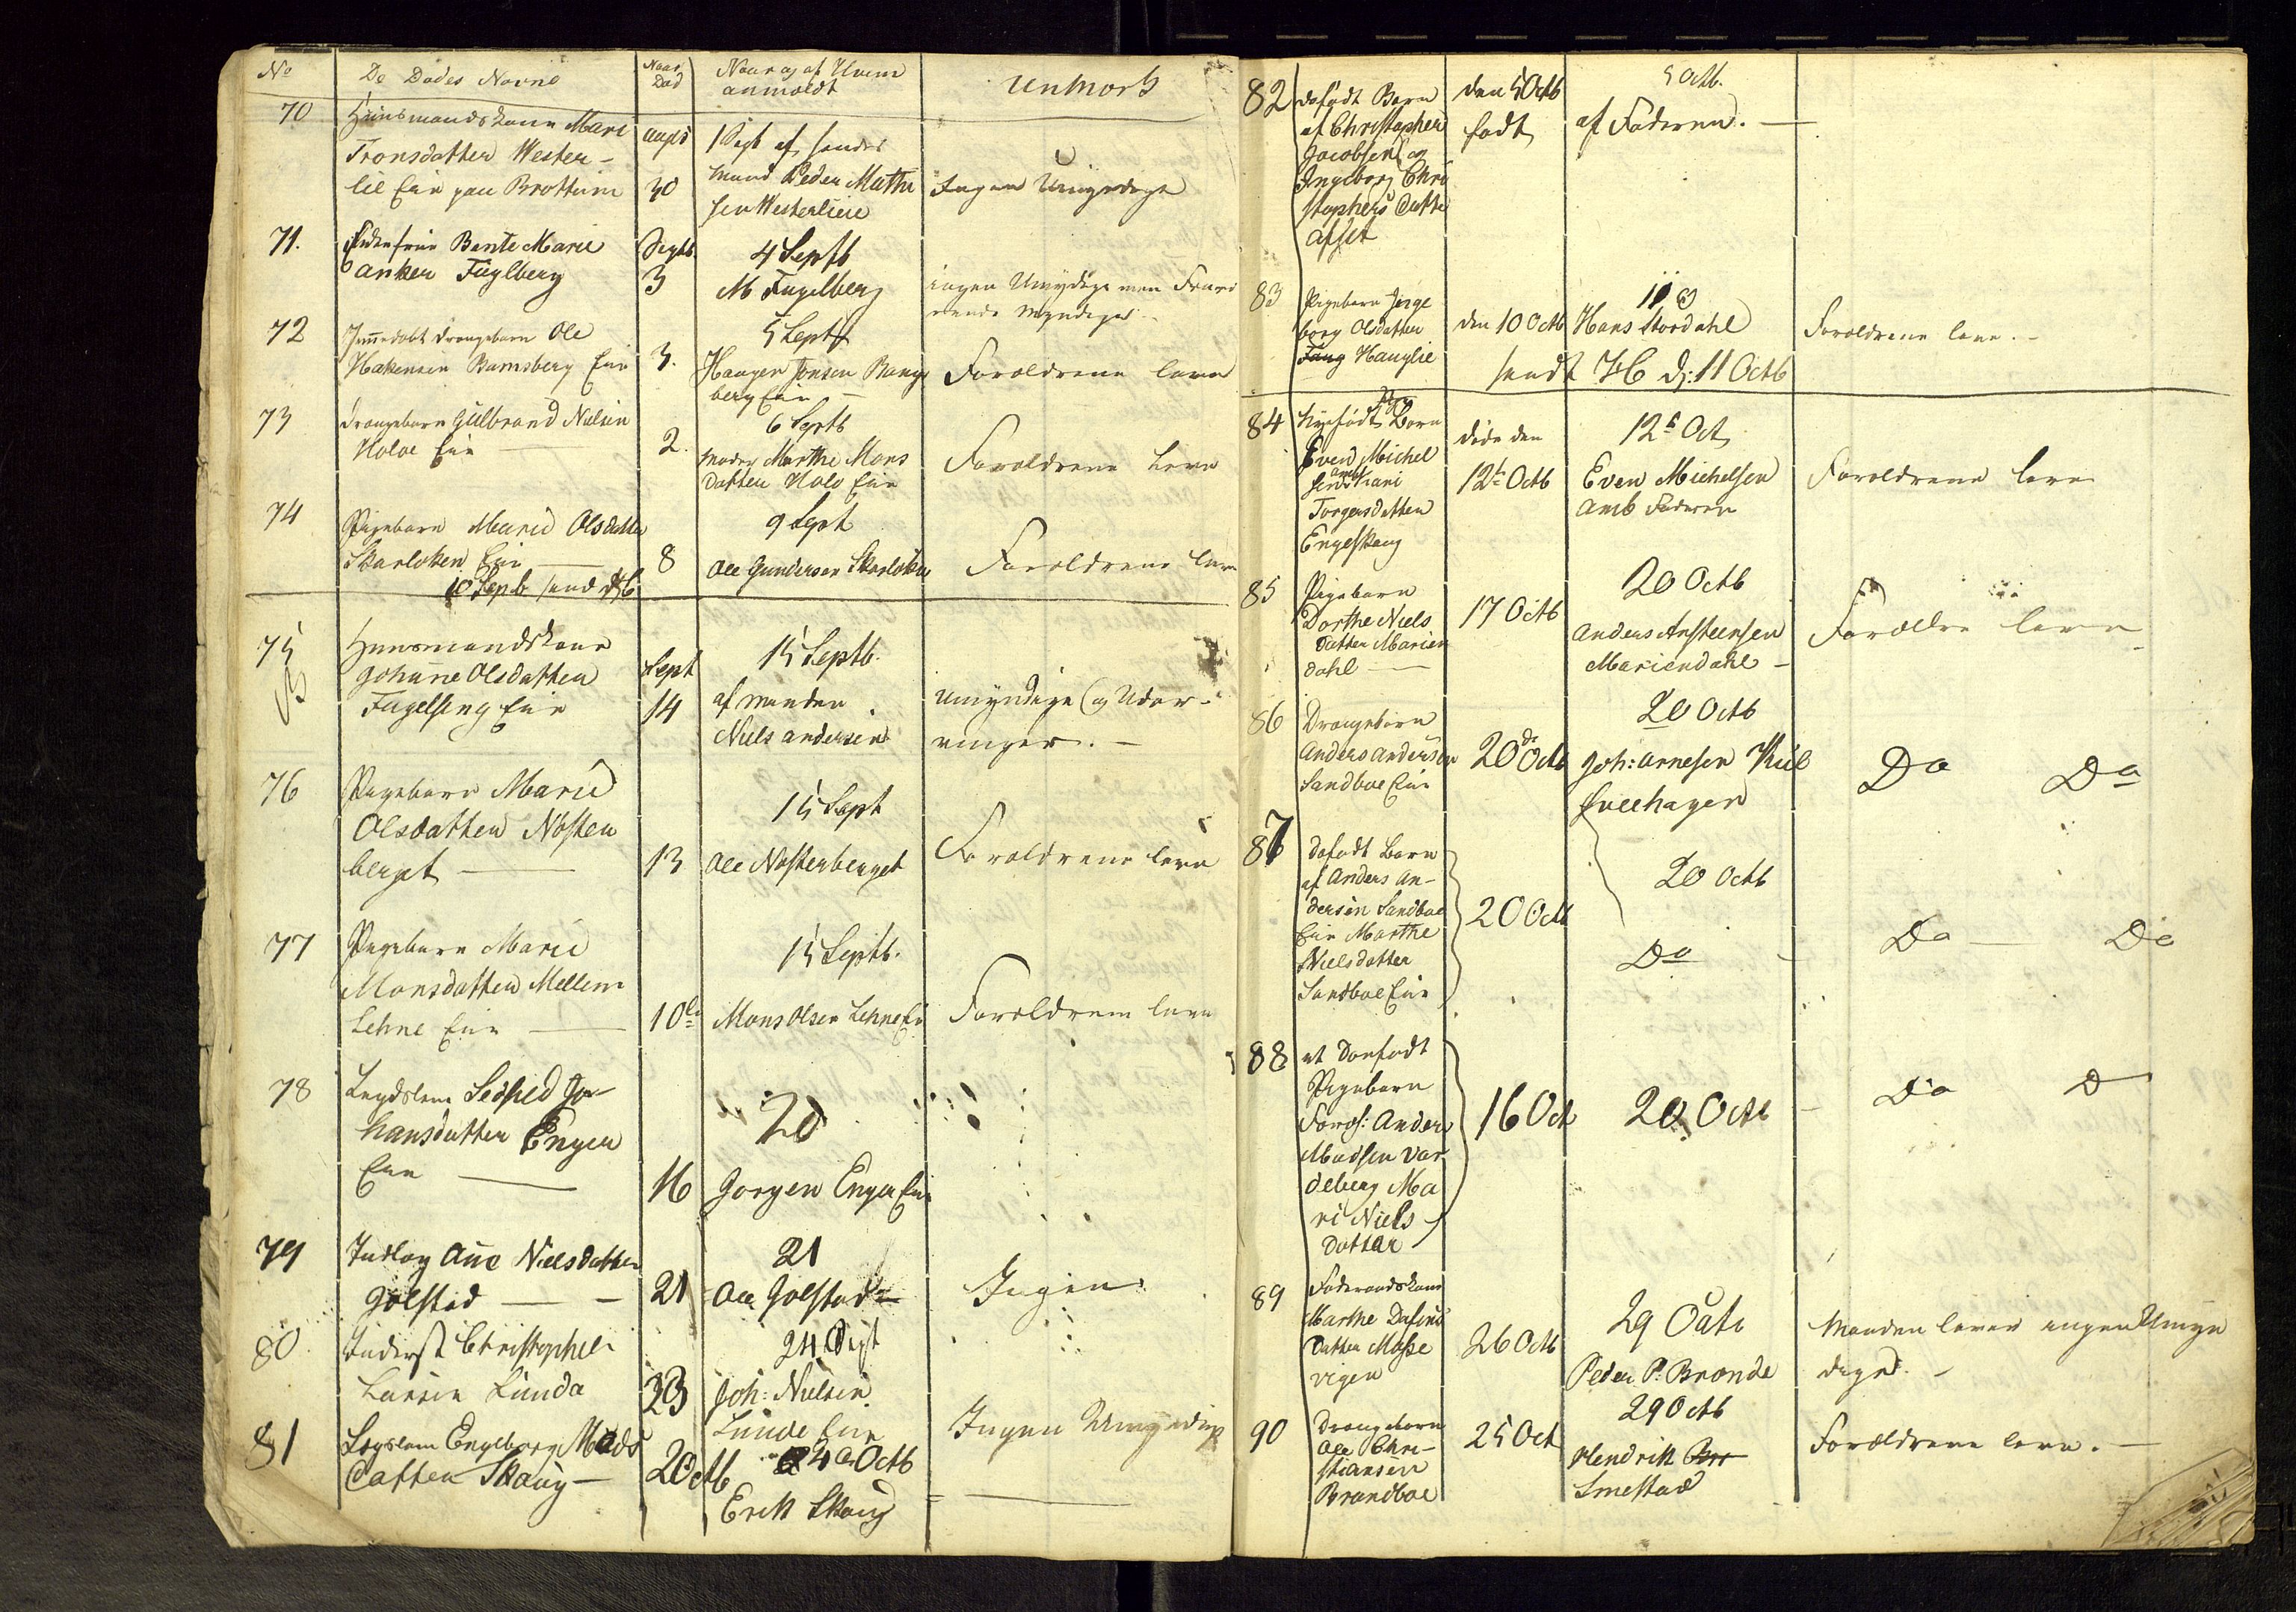 No De Dødes Navne Naar Død Naar og af Hvem anmeldt Anmærk
70 Huusmandskone Mari
Tronsdatter Wester-
lie Eie paa Brøttum
Augst
30
1 Sept af hendes
Mand Peder Mathi
sen Westerlieie
Ingen Umyndige
71. Bente Marie
Anker Fuglberg
Septb
3
4 Septb
M Fugelberg
ingen Umyndige men
Myndige
72 Drængebarn Ole
Hakensen Bamsberg Eie
3.
5 Septb
Haagen Jonsen Bams
berg Eie
Forældrene leve
73 Drængebarn Gulbrand Nielsen
Holoe Eie
2.
6 Septb
Moder Marthe Mons
datter Holo Eie
Forældrene leve
74 Pigebarn Marie Olsdatter
Skarloken Eie
8
9 Sept
Ole Gundersen Skarloken
Forældrene leve
10 Septb send
75 Huusmandskone
Johanne Olsdatter
Fugelseng Eie
Sept
14
15 Septb.
af Manden
Niels Andersen
Umyndige og Udar-
vinger. -
76 Pigebarn Marie
Olsdatter Nosten
berget
13
15 Sept
Ole Nostenberget
Forældrene leve
77 Pigebarn Marie
Monsdatter Mellem
Lehne Eie
10de
15 Septb.
Mons Olsen Lehne Ei
Forældrene leve
78 Lægdslem Sidsed Jo-
hansdatter Enger
Eie
16
20
Jorgen Enger Eie
79 Inderst Ane Nielsdatter
Gølstad
21
21
Ole Gølstad
Ingen
80 Inderst Christopher
Larsen Lunda
23
24 Sept
Joh: Nielsen
Lunde Eie
81 Lægslem Engeborg Mads
datter Skaug -
2 Octb
4 Octb
Erik Skoug
Ingen Umyndige
82 Dødfødt Barn
af Christopher
Jacobsen og
Ingeborg Chri
stophers Datte
Afset
den 5 Octb
født
5 Octb.
af Faderen. -
83 Pigebarn Inge
borg Olsdatter
Hauglie
den 10 Octb
11
Hans Stordahl
Forældrene leve. -
sendt d: 11 Octb
84 Nyefødt Barn
Even Michel
sen
Torgersdatter
Engeskaug
døde den
12te Octb
12te Oct
Even Michelsen
amb Faderen
Forældrene leve
85 Pigebarn
Dorthe Niels
datter Marien
dahl
17 Octb
20 Octb
Anders Ansteensen
Mariendahl -
Forældre leve
86 Drængebarn
Anders Andersen
Sandboe Eie
20de Octb
20 Octb
Joh: Arnesen
hagen
Do Do
87 Dødfødt Barn
af Anders An-
dersen Sandboe
Eie Marthe
Nielsdatter
Sandboe Eie
20 Octb
20 Octb
Do
Do Do
88 et Dødfødt
Pigebarn
Foræl: Anders
Madsen Var
deberg Ma
ri Niels
datter
16 Oct
20 Octb
Do D
89 Føderaadskone
Marthe
Datter Mosse
vigen
26 Octb
29 Octb
Peder P. Brende
Manden lever ingen Umyn
dige. -
90 Drængebarn
Ole Chri-
stiansen
Brandboe
25 Oct
29 Octb
Hendrik
Smestad
Forældrene leve. -